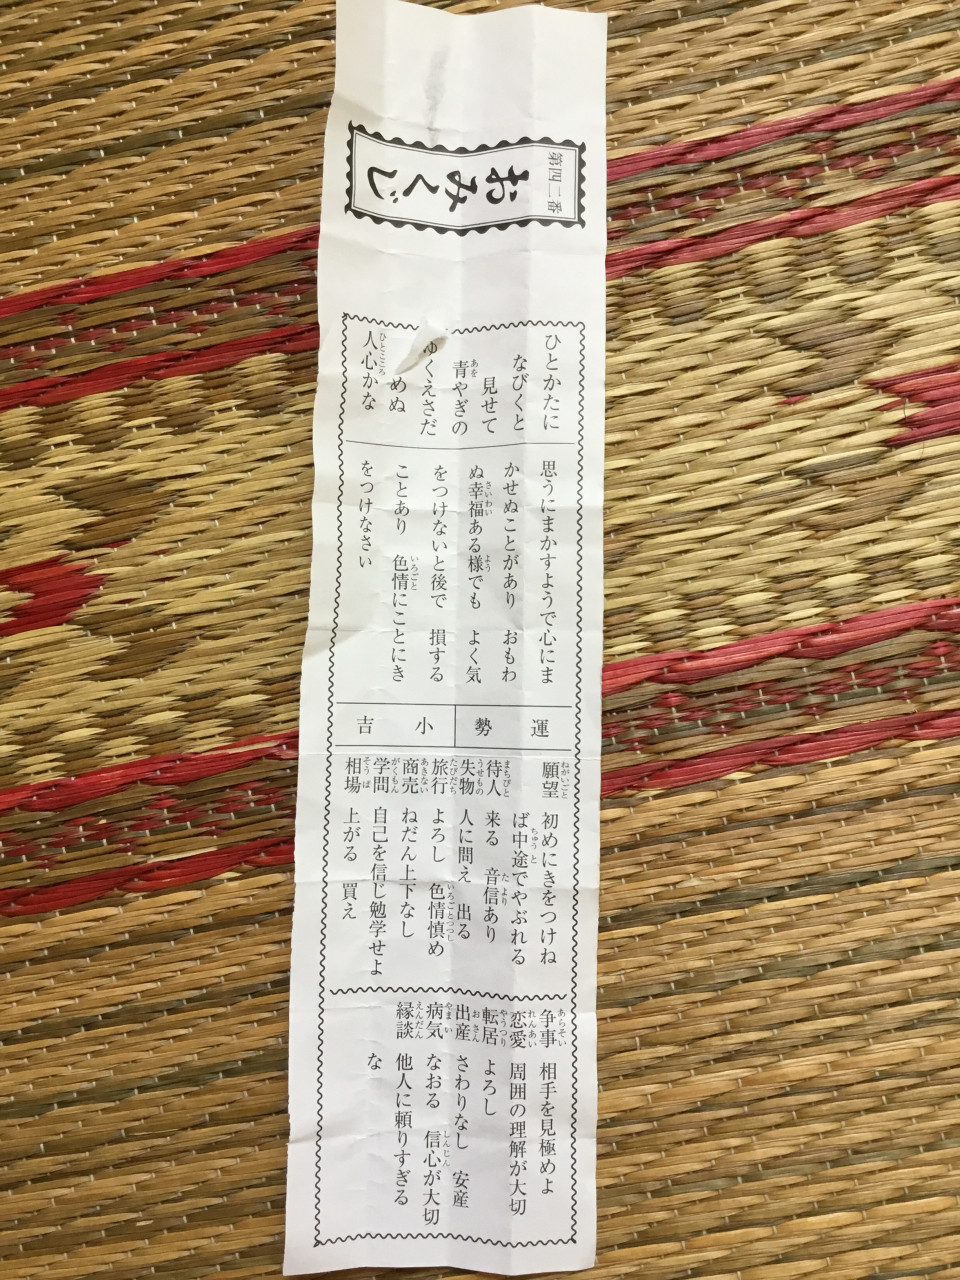 第四二番
おみくじ
ひとかたに
なびくと
見せて
青やぎの
ゆくえさだ
めぬ
人心かな
思うにまかすようで心にま
かせぬことがあり おもわ
ぬ幸福ある様でも よく気
をつけないと後で 損する
ことあり 色情にことにき
をつけなさい
運勢 小吉
願望 初めにきをつけね
ば中途でやぶれる
待人 来る 音信あり
失物 人に問え 出る
旅行 よろし 色情慎め
商売 ねだん上下なし
学問 自己を信じ勉学せよ
相場 上がる 買え
争事 相手を見極めよ
恋愛 周囲の理解が大切
転居 よろし
出産 さわりなし 安産
病気 なおる 信心が大切
縁談 他人に頼りすぎる
な